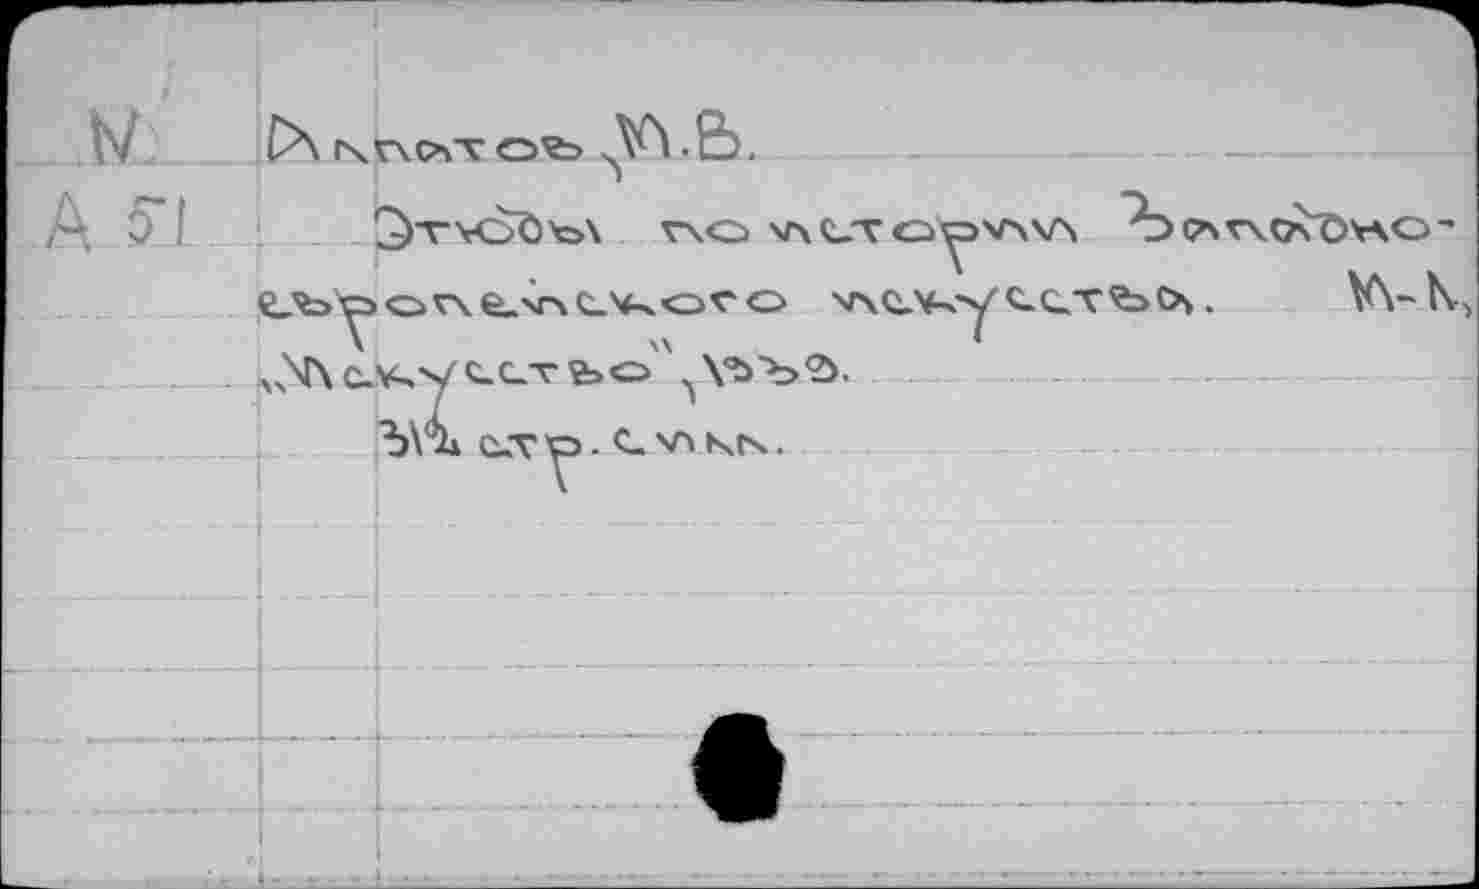 N Алпатов М.В.
A 51 Этюды по истории Западно-
европейского искусства. М-Л,
„Искусство", 1939.
стр. с илл.